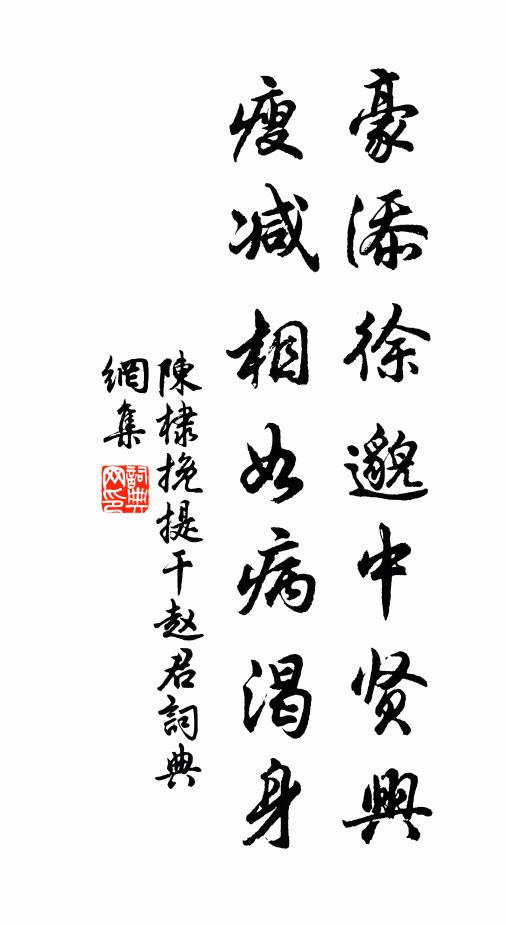 豪添徐邈中贤興
瘦减相如病渴身
陳棣挽提干赵君詞典
網集
詞典網印